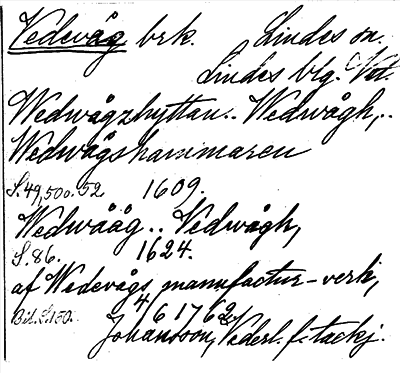 Vedevåg brk. Lindes sn.
Lindes blg. Vstl.
Wedwågzhyttan.. Wedwågh,..
Wedwågshammaren
S. 49, 50 o. 52 1609.
Wedwååg.. Vedwågh,
S. 86. 1624.
af Wedevågs manufactur-verk,
Bil. S. 150. 4/6 1762
Johansson, Vederl. f. tackj.